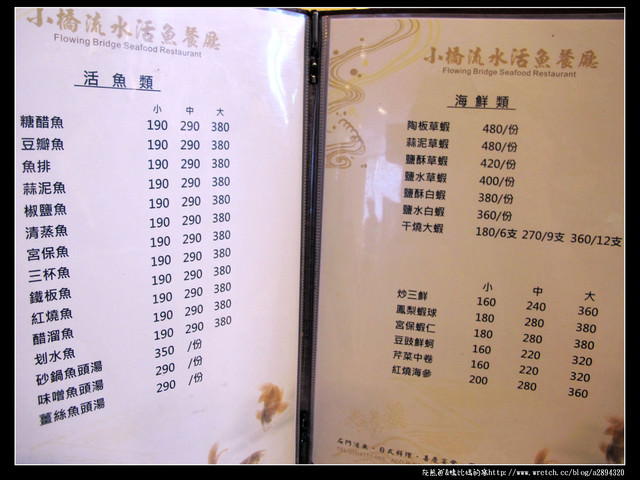 小橋流水活魚餐廳
Flowing Bridge Seafood Restaurant
活魚類
小 中 大
糖醋魚 190 290 380
豆瓣魚 190 290 380
魚排 190 290 380
蒜泥魚 190 290 380
椒鹽魚 190 290 380
清蒸魚 190 290 380
宮保魚 190 290 380
三杯魚 190 290 380
鐵板魚 190 290 380
紅燒魚 190 290 380
醋溜魚 190 290 380
划水魚 190 290 380
砂鍋魚頭湯 350 /份
味噌魚頭湯 290 /份
薑絲魚頭湯 290 /份
小橋流水活魚餐廳
Flowing Bridge Seafood Restaurant
海鮮類
陶板草蝦 480/份
蒜泥草蝦 480/份
鹽酥草蝦 420/份
鹽水草蝦 400/份
鹽酥白蝦 380/份
鹽水白蝦 360/份
干燒大蝦 180/6支 270/9支 360/12支
小 中 大
炒三鮮 160 240 360
鳳梨蝦球 180 280 380
宮保蝦仁 180 280 380
豆豉鮮蚵 160 220 320
芹菜中卷 160 220 320
紅燒海參 200 280 360
石門活魚・日式料理・喜慶宴會
http://www.wretch.cc/blog/a2894320